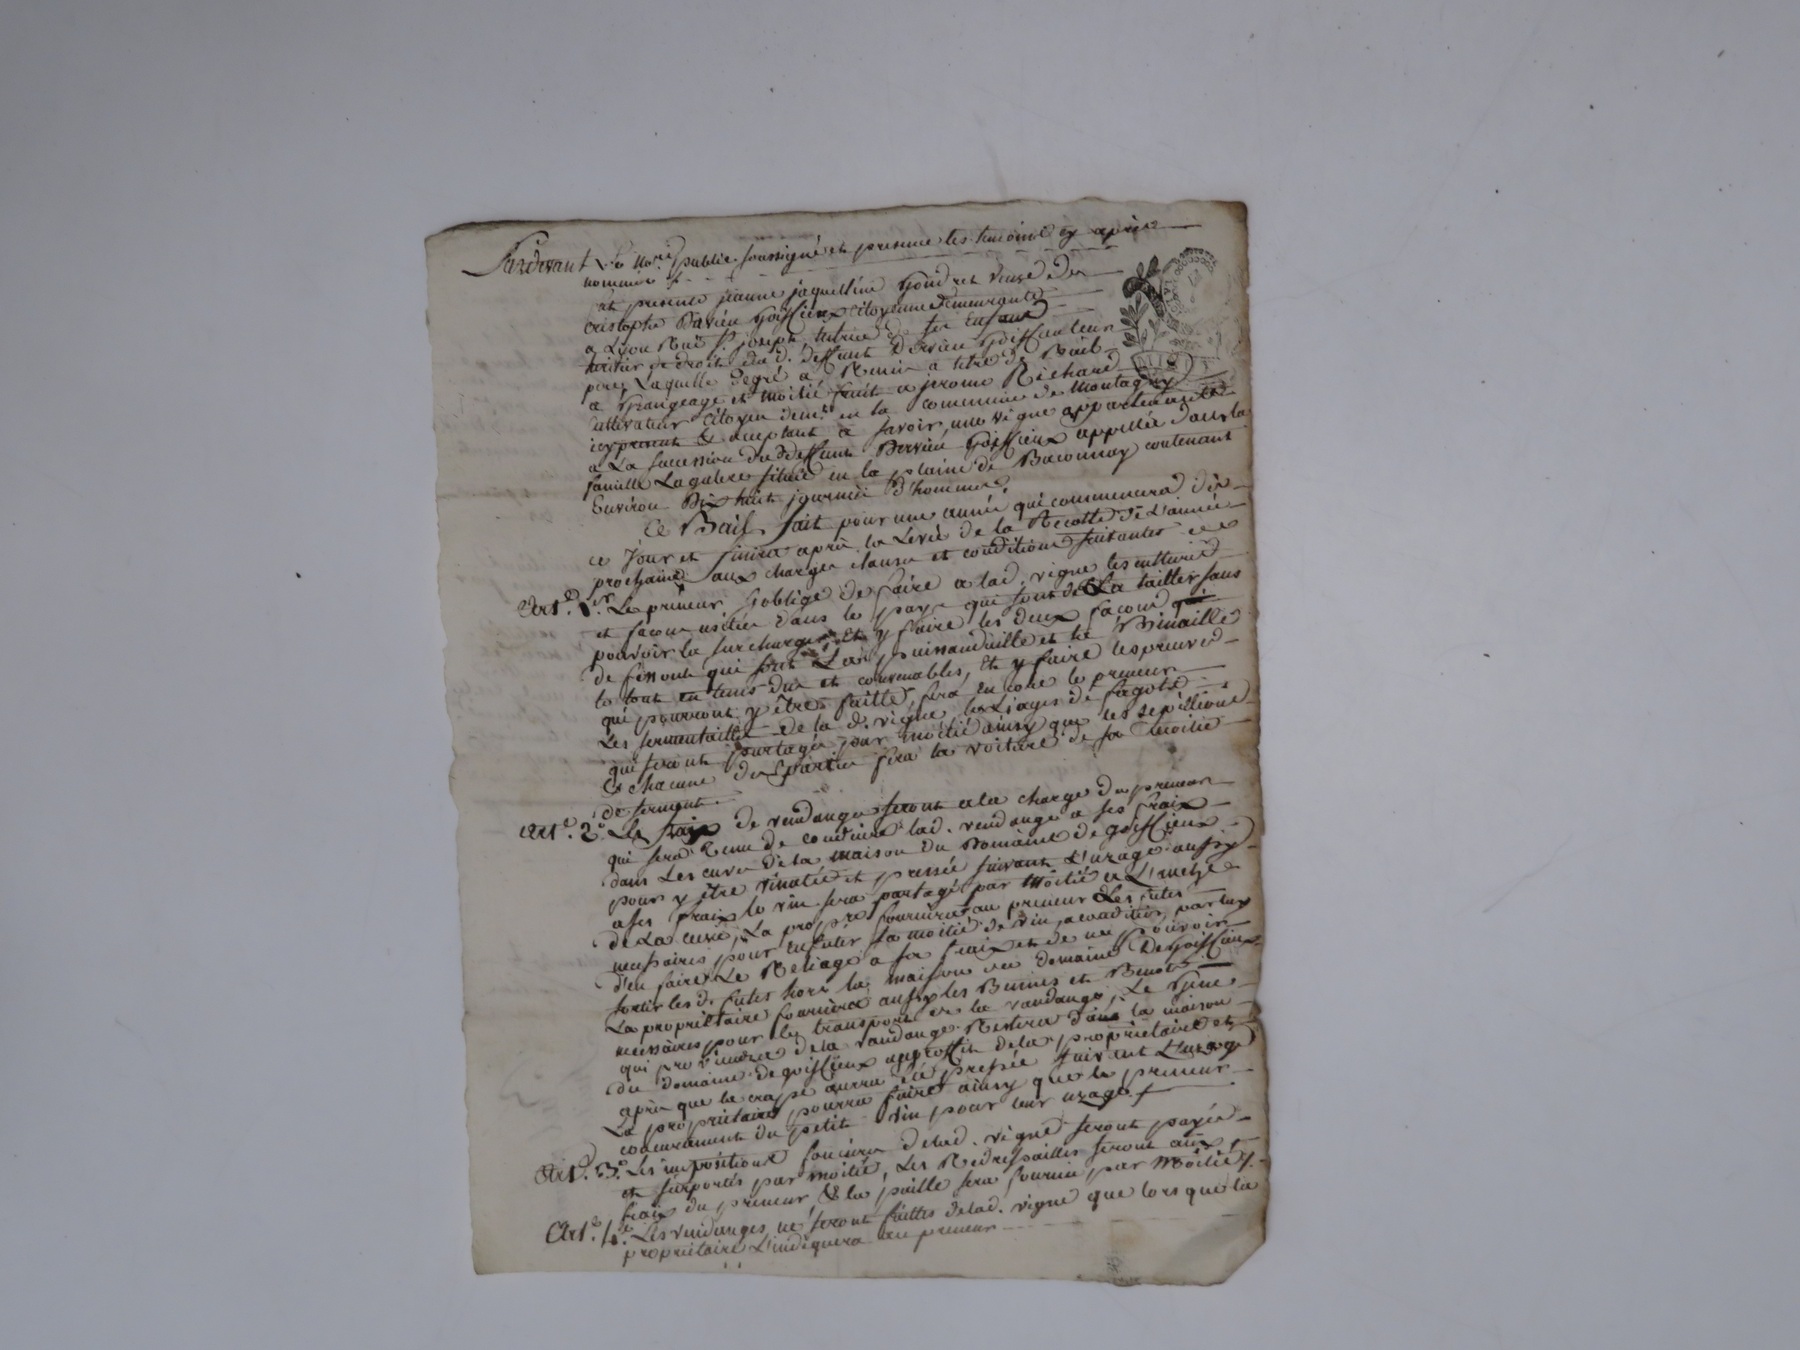 Pardevant Le No.re public soussigné et presence les temoins cy après
nommés
est presente jeanne jaquelline Gondret veuve de
cristophe Dervieu Goiffieux citoyenne demeurante
a Lyon Rue St. joseph tutrice de ses Enfans
heritier de droit dud. deffunt Dervieu Goiffieu leur
pere, Laquelle degré a Remis a titre de Bail
a Grangeage et moitié fruit a jerome Richard
cultivateur citoyen demt. en la commune de Montagny
icy present & acceptant a savoir, une vigne appartenante
a La succession dud deffunt Dervieu Goiffieux appellée dans la
famille La galere située en la plaine de Baconnay contenant
Environ Dix huit journée d'hommes.
Ce Bail fait pour une année qui commencera dès
ce jour et finira après la Levée de la Recolte de L'année
prochaine aux charges clauses et conditions suivantes
Art. 1er. Le preneur s'oblige de faire a lad. vigne les cultures
et façons usitées dans le pays qui sont de La tailler sans
pouvoir la surcharger, Et y faire les deux façons
de fessoule qui sont La et la Binaille
le tout en tems du et convenables, Et y faire les preuves
qui pourront y être faittes, sera encore le preneur
Les sermentailles de la d. vigne les Liages de fagots
qui seront partagés par moitié ainsy que les
& chacune des parties fera la voiture de sa moitié
de serment.
Art. 2e Les frais de vendange seront a la charge du preneur
qui sera tenu de conduire lad. vendange a ses fraix
dans Les cuves de la maison du Domaine de goiffieux
pour y être et pressée suivant L'uzage aussy
a ses fraix le vin sera partagé par Moitié a L'
de La cuve, La propre. fournira au preneur Les futes
necessaires pour Enfuter sa moitié de vin, a condition par luy
d'en faire Le Reliage a ses fraix et de ne pouvoir
sortir les d. futes hors la maison du domaine de Goiffieux
La propriettaire fournira aussy les Bennes et Benots
necessaires pour le transport de la vandange, Le Gene
qui proviendra de la vandange Restera dans la maison
du domaine de goiffieux au proffit de la propriétaire et
après que la crape aurra été pressée suivant L'uzage
La propriétaire pourra faire ainsy que le preneur
conjurément du petit vin pour leur uzage
Art. 3e Les impositions foncieres de lad. vigne seront payées
et suportés par moitié, Les Redressailles seront aux
fraix du preneur & la paille sera fournie par Moitié
Art. 4e. Les vendanges ne seront faittes de lad. vigne que lors que la
propriétaire L'indiquera au preneur